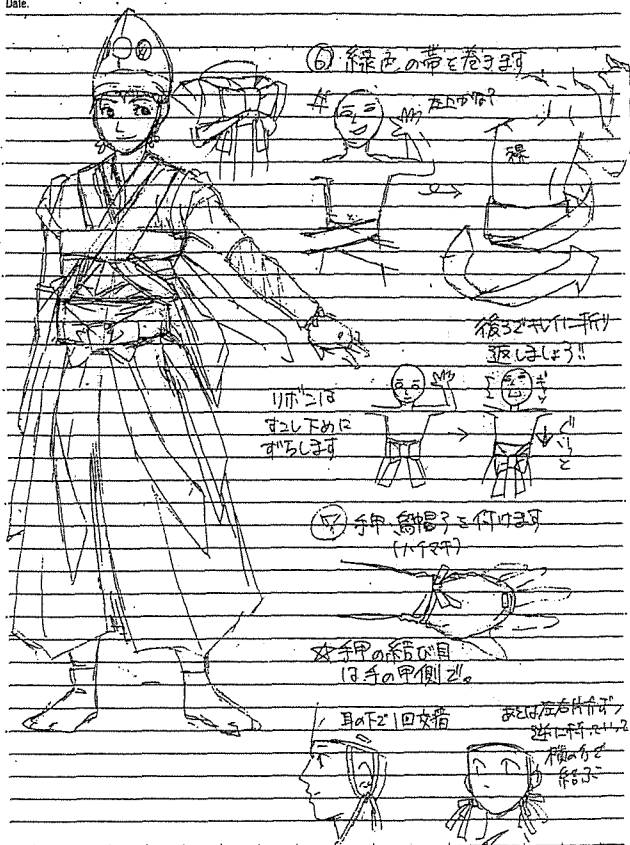 Date.
⑥ 緑色の帯を巻きます
左上かな?
後ろでキレイに折り
返しましょう!!
リボンは
すこし下めに
ずらします
ギャッ
ぐいっと
⑦ 手甲、烏帽子を付けます
(ハチマキ)
☆手甲の結び目
は手の甲側で。
耳の下で1回交替
あとは左右
横の方で
結ぶ